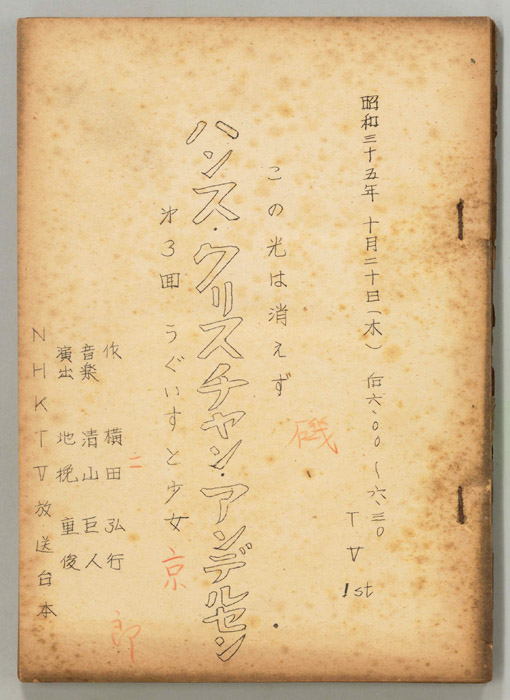 昭和三十五年 十月二十日(木) 后六、〇〇～六、三〇
TV
1st
この光は消えず
ハンス・クリスチャン・アンデルセン
第3回 うぐいすと少女
作 横田 弘行
音楽 清山 巨人
演出 地挽 重俊
NHKTV放送台本
磯
京
二
郎